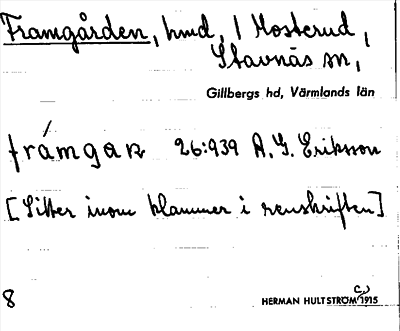 Framgården, hmd, i Mosterud,
Stavnäs sn,
Gillbergs hd, Värmlands län
frámgaɴ 26:939 A. G. Eriksson
[Sitter inom klammer i renskriften]
8
HERMAN HULTSTRÖM (?) 1915